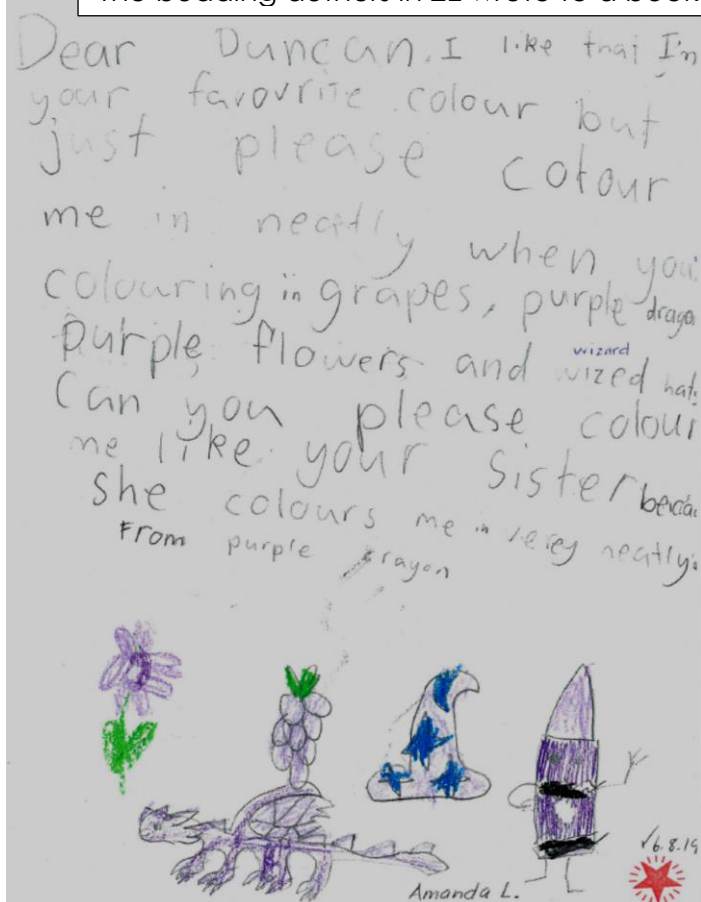 Dear Duncan. I like that I'm
your favourite colour but
just please colour
me in neatly when you
colouring in grapes, purple
purple flowers and wizard wized
Can you please colour
me like your Sister
she colours me in verey neatly.
From purple crayon
Amanda L.